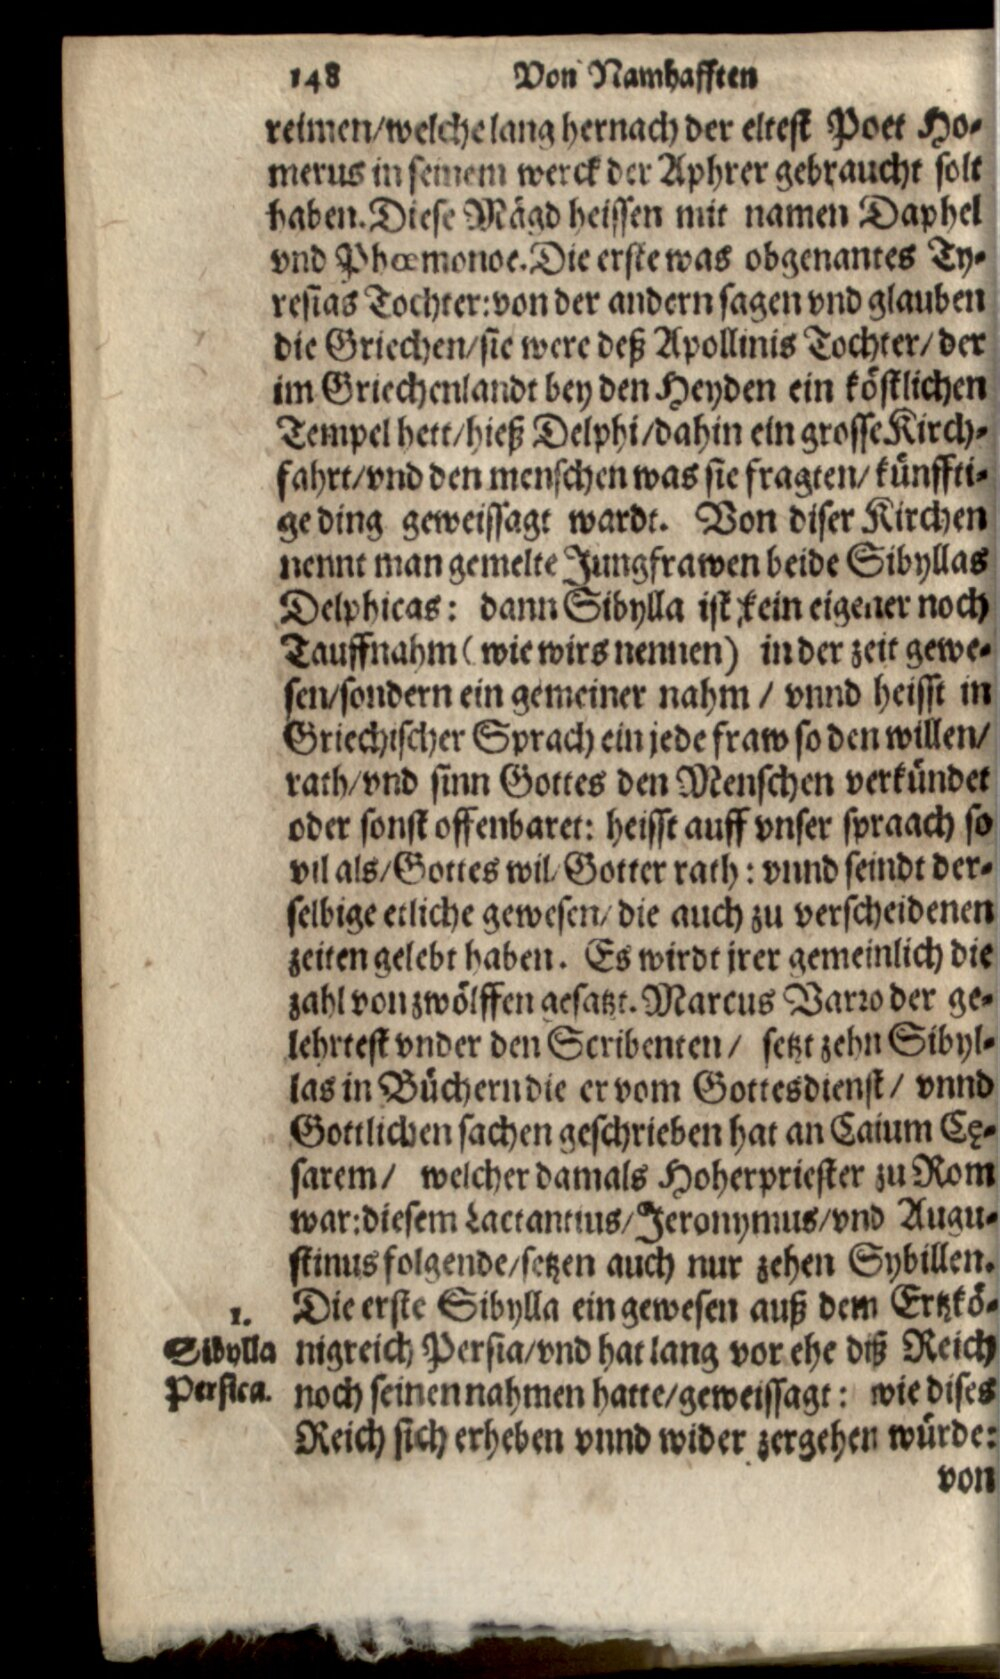 148 Von Namhafften
reimen/welche lang hernach der eltest Poet Ho-
merus in seinem werck der Aphrer gebraucht solt
haben. Diese Mägd heissen mit namen Daphel
vnd Phœmonoe. Die erste was obgenantes Ty-
resias Tochter: von der andern sagen vnd glauben
die Griechen/sie were deß Apollinis Tochter/der
im Griechenlandt bey den Heyden ein köstlichen
Tempel hett/hieß Delphi/dahin ein grosse Kirch-
fahrt/vnd den menschen was sie fragten/künffti-
ge ding geweissagt wardt. Von diser Kirchen
nennt man gemelte Jungfrawen beide Sibyllas
Delphicas: dann Sibylla ist kein eigener noch
Tauffnahm (wie wirs nennen) in der zeit gewe-
sen/sondern ein gemeiner nahm / vnnd heisst in
Griechischer Sprach ein jede fraw so den willen/
rath/vnd sinn Gottes den Menschen verkündet
oder sonst offenbaret: heisst auff vnser spraach so
vil als/Gottes wil/Gotter rath: vnnd seindt der-
selbige etliche gewesen/die auch zu verscheidenen
zeiten gelebt haben. Es wirdt jrer gemeinlich die
zahl von zwölffen gesatzt. Marcus Varro der ge-
lehrtest vnder den Scribenten/ setzt zehn Sibyl-
las in Büchern die er vom Gottesdienst/ vnnd
Gottlichen sachen geschrieben hat an Caium Cę-
sarem/ welcher damals Hoherpriester zu Rom
war: diesem Lactantius/Jeronymus/vnd Augu-
stinus folgende/setzen auch nur zehen Sybillen.
1. Die erste Sibylla ein gewesen auß dem Ertzkö-
Sibylla nigreich Persia/vnd hat lang vor ehe diß Reich
Persica. noch seinen nahmen hatte/geweissagt: wie dises
Reich sich erheben vnnd wider zergehen würde:
von